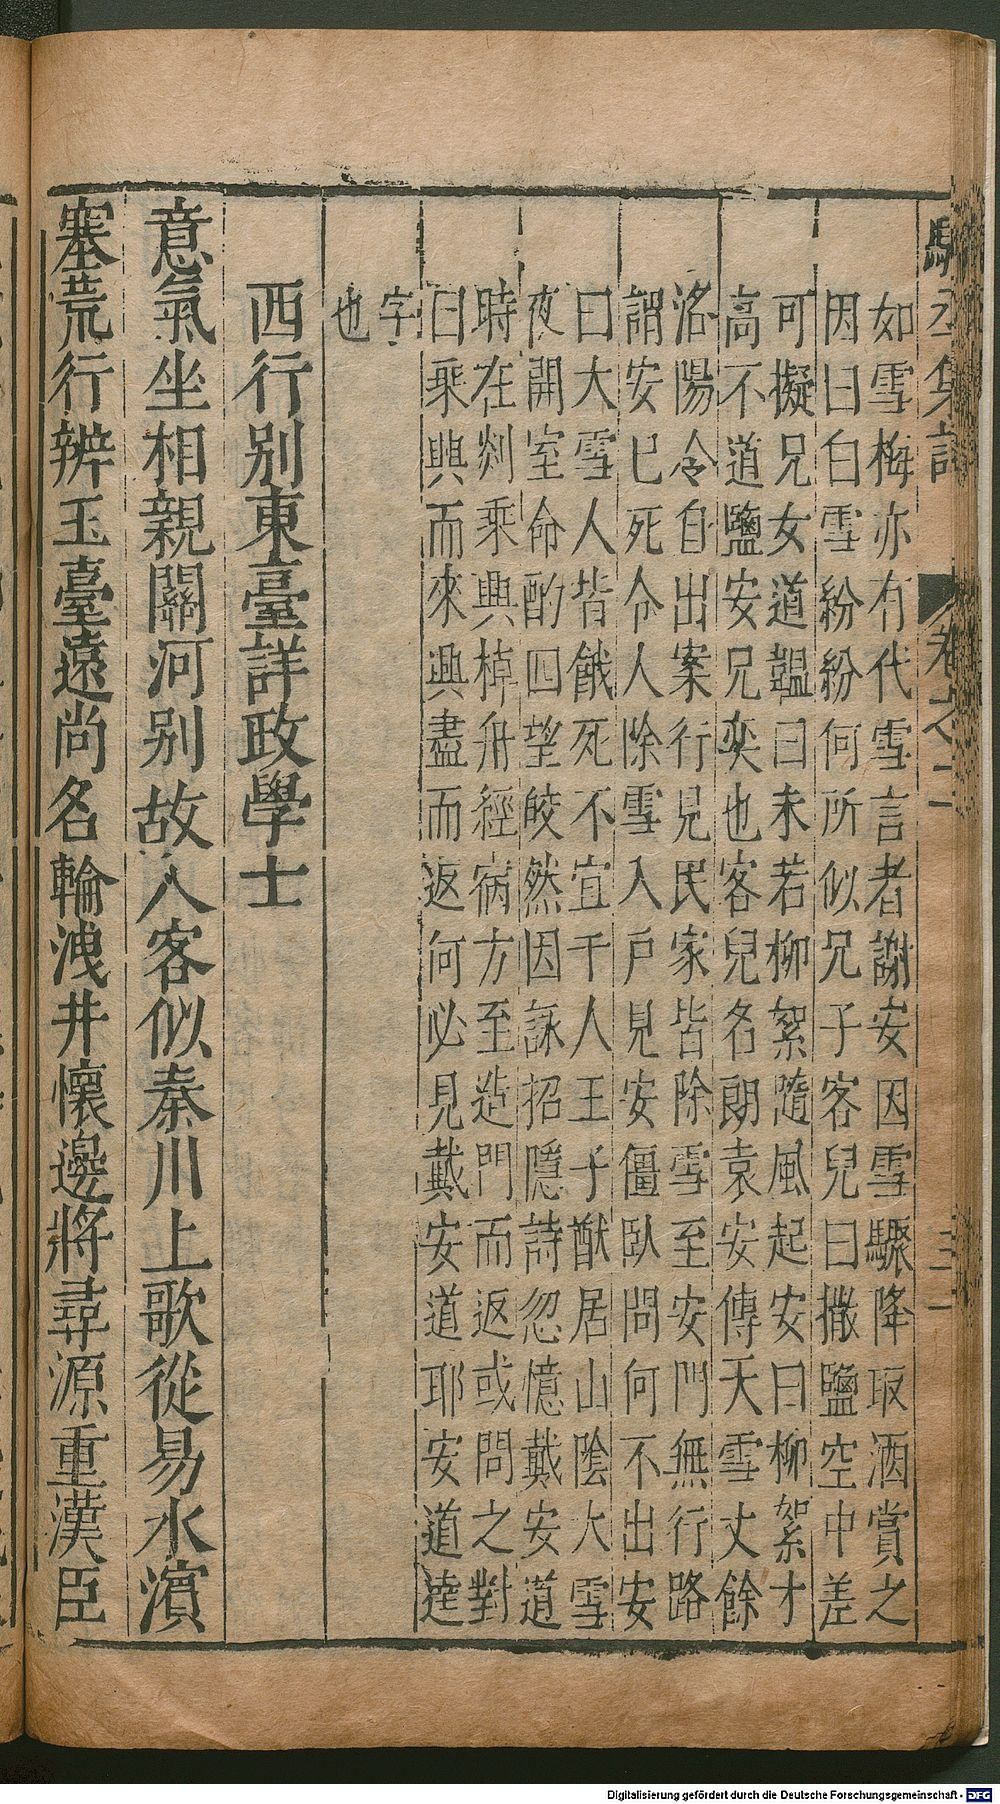 如雪梅亦有代雪言者謝安因雪驟降取酒賞之
因曰白雪紛紛何所似兄子客兒曰撒鹽空中差
可擬兄女道韞曰未若柳絮隨風起安曰柳絮才
高不道鹽安兄奕也客兒名朗袁安傳天雪丈餘
洛陽令自出案行見民家皆除雪至安門無行路
謂安已死令人除雪入戶見安僵臥問何不出安
曰大雪人皆餓死不宜干人王子猷居山陰大雪
夜開室命酌四望皎然因詠招隱詩忽憶戴安道
時在剡乘興棹舟經宿方至造門而返或問之對
曰乘興而來興盡而返何必見戴安道耶安道逵
字
也
西行別東臺詳政學士
意氣坐相親關河別故人客似秦川上歌從易水濱
塞荒行辨玉臺遠尚名輪洩井懷邊將尋源重漢臣
丞集註
卷之二
Digitalisierung gefördert durch die Deutsche Forschungsgemeinschaft - DFG